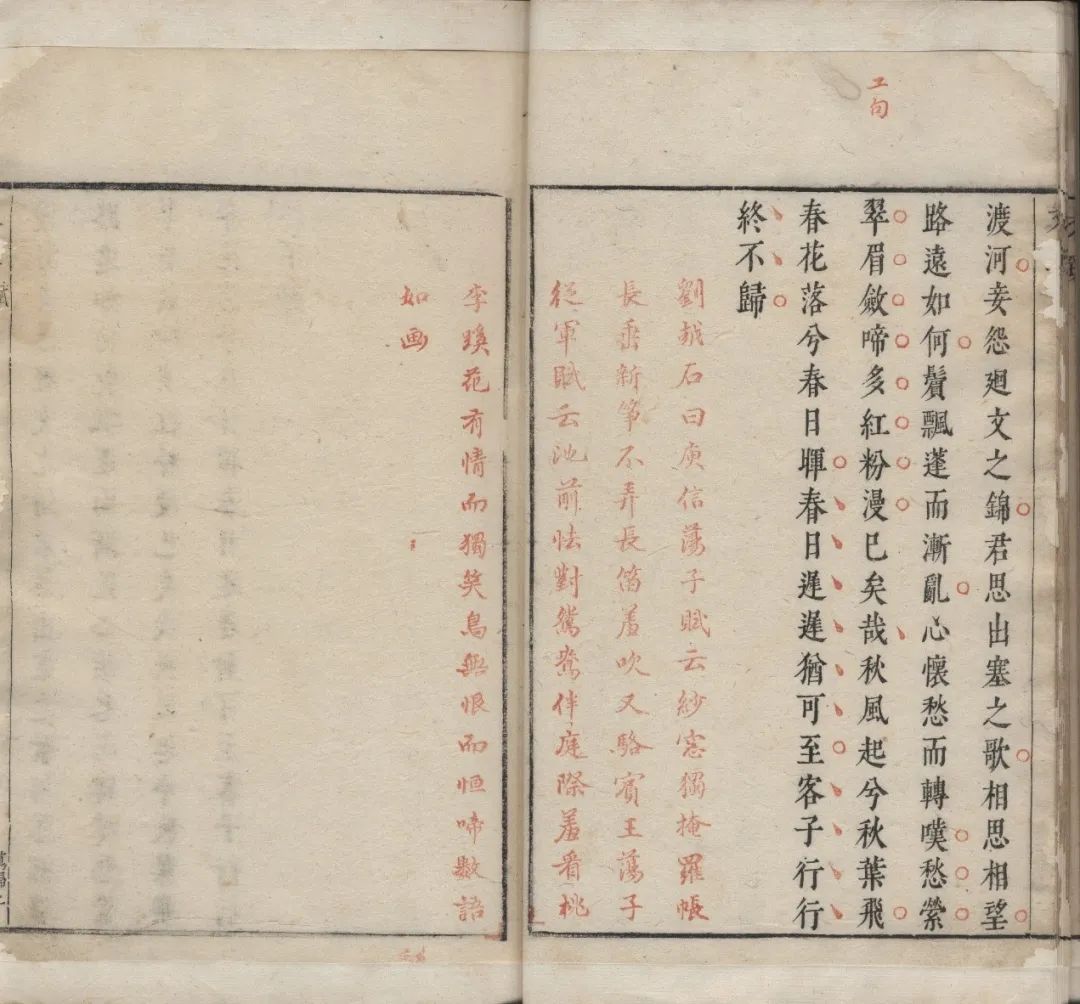 工句
渡河妾怨廻文之錦君思出塞之歌相思相望
路遠如何鬢飄蓬而漸亂心懷愁而轉嘆愁縈
翠眉斂啼多紅粉漫已矣哉秋風起兮秋葉飛
春花落兮春日暉春日遲遲猶可至客子行行
終不歸
劉越石曰庾信蕩子賦云紗窓獨掩羅帳
長垂新筝不弄長笛羞吹又駱賓王蕩子
從軍賦云池前怯對鴛鴦伴庭際羞看桃
李蹊花有情而獨笑鳥無恨而恒啼數語
如画